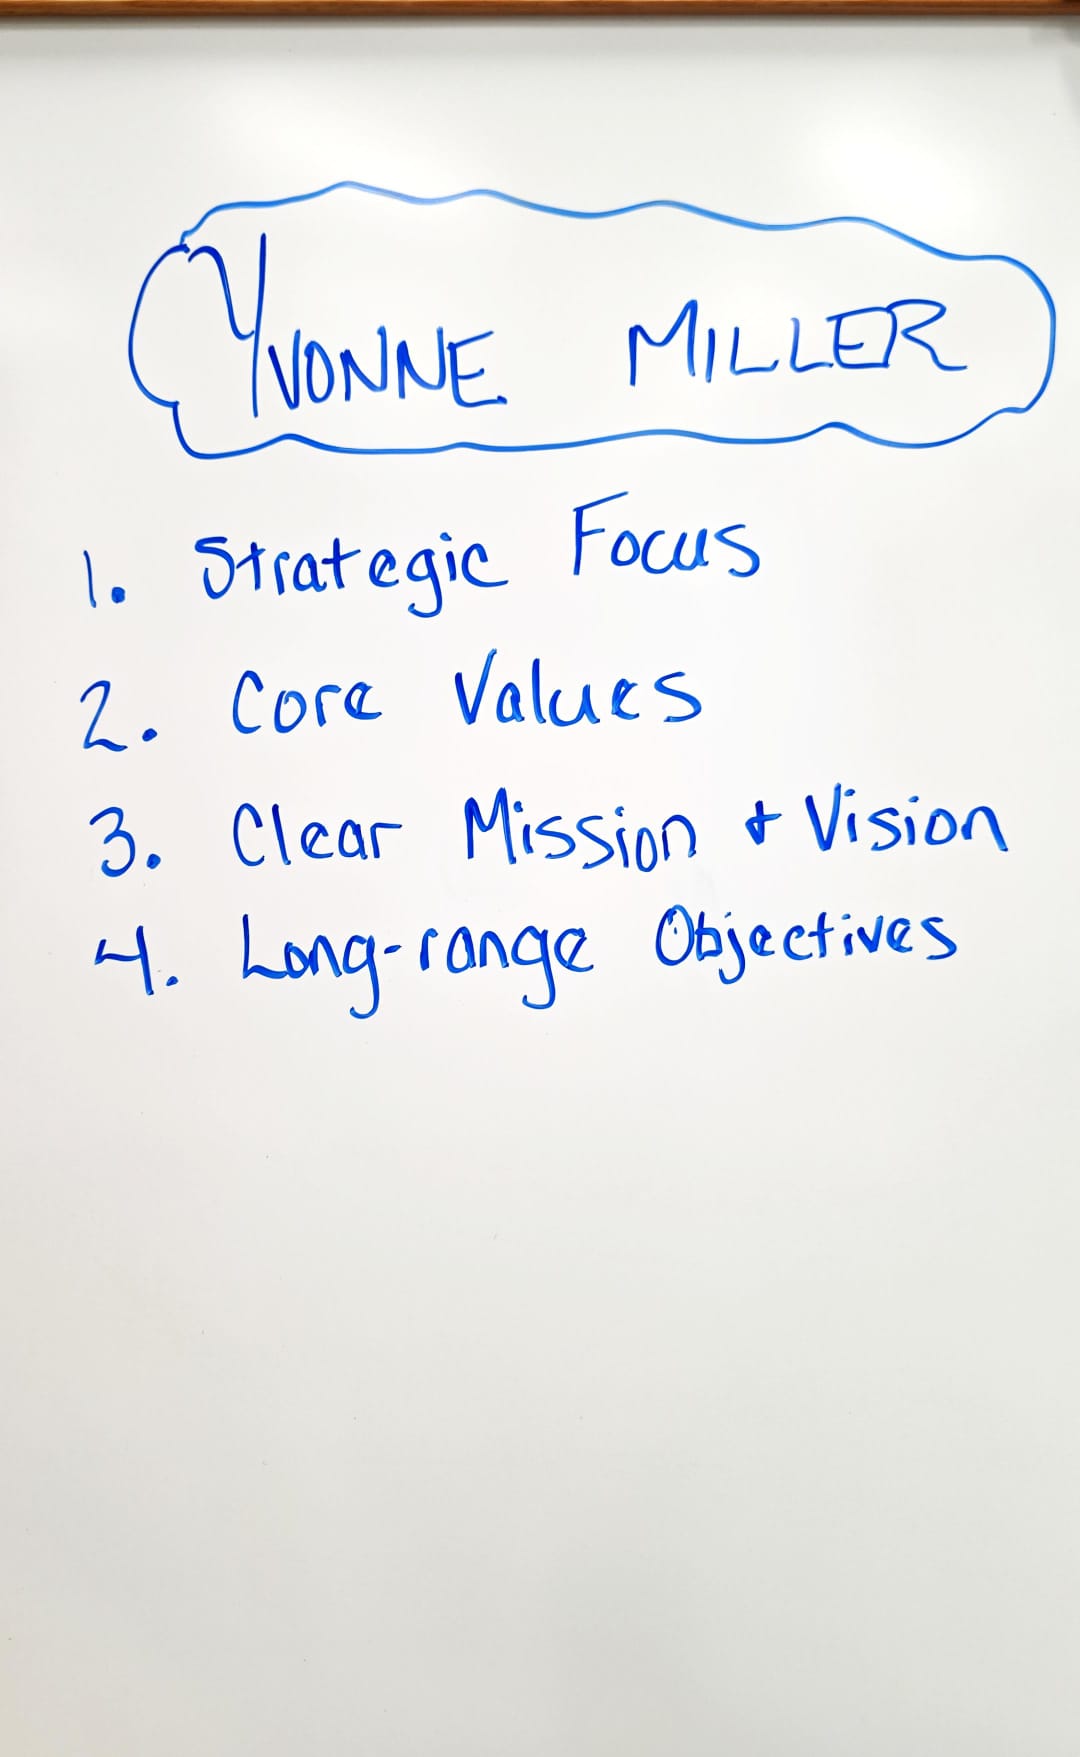 YVONNE MILLER
1. Strategic Focus
2. Core Values
3. Clear Mission + Vision
4. Long-range Objectives